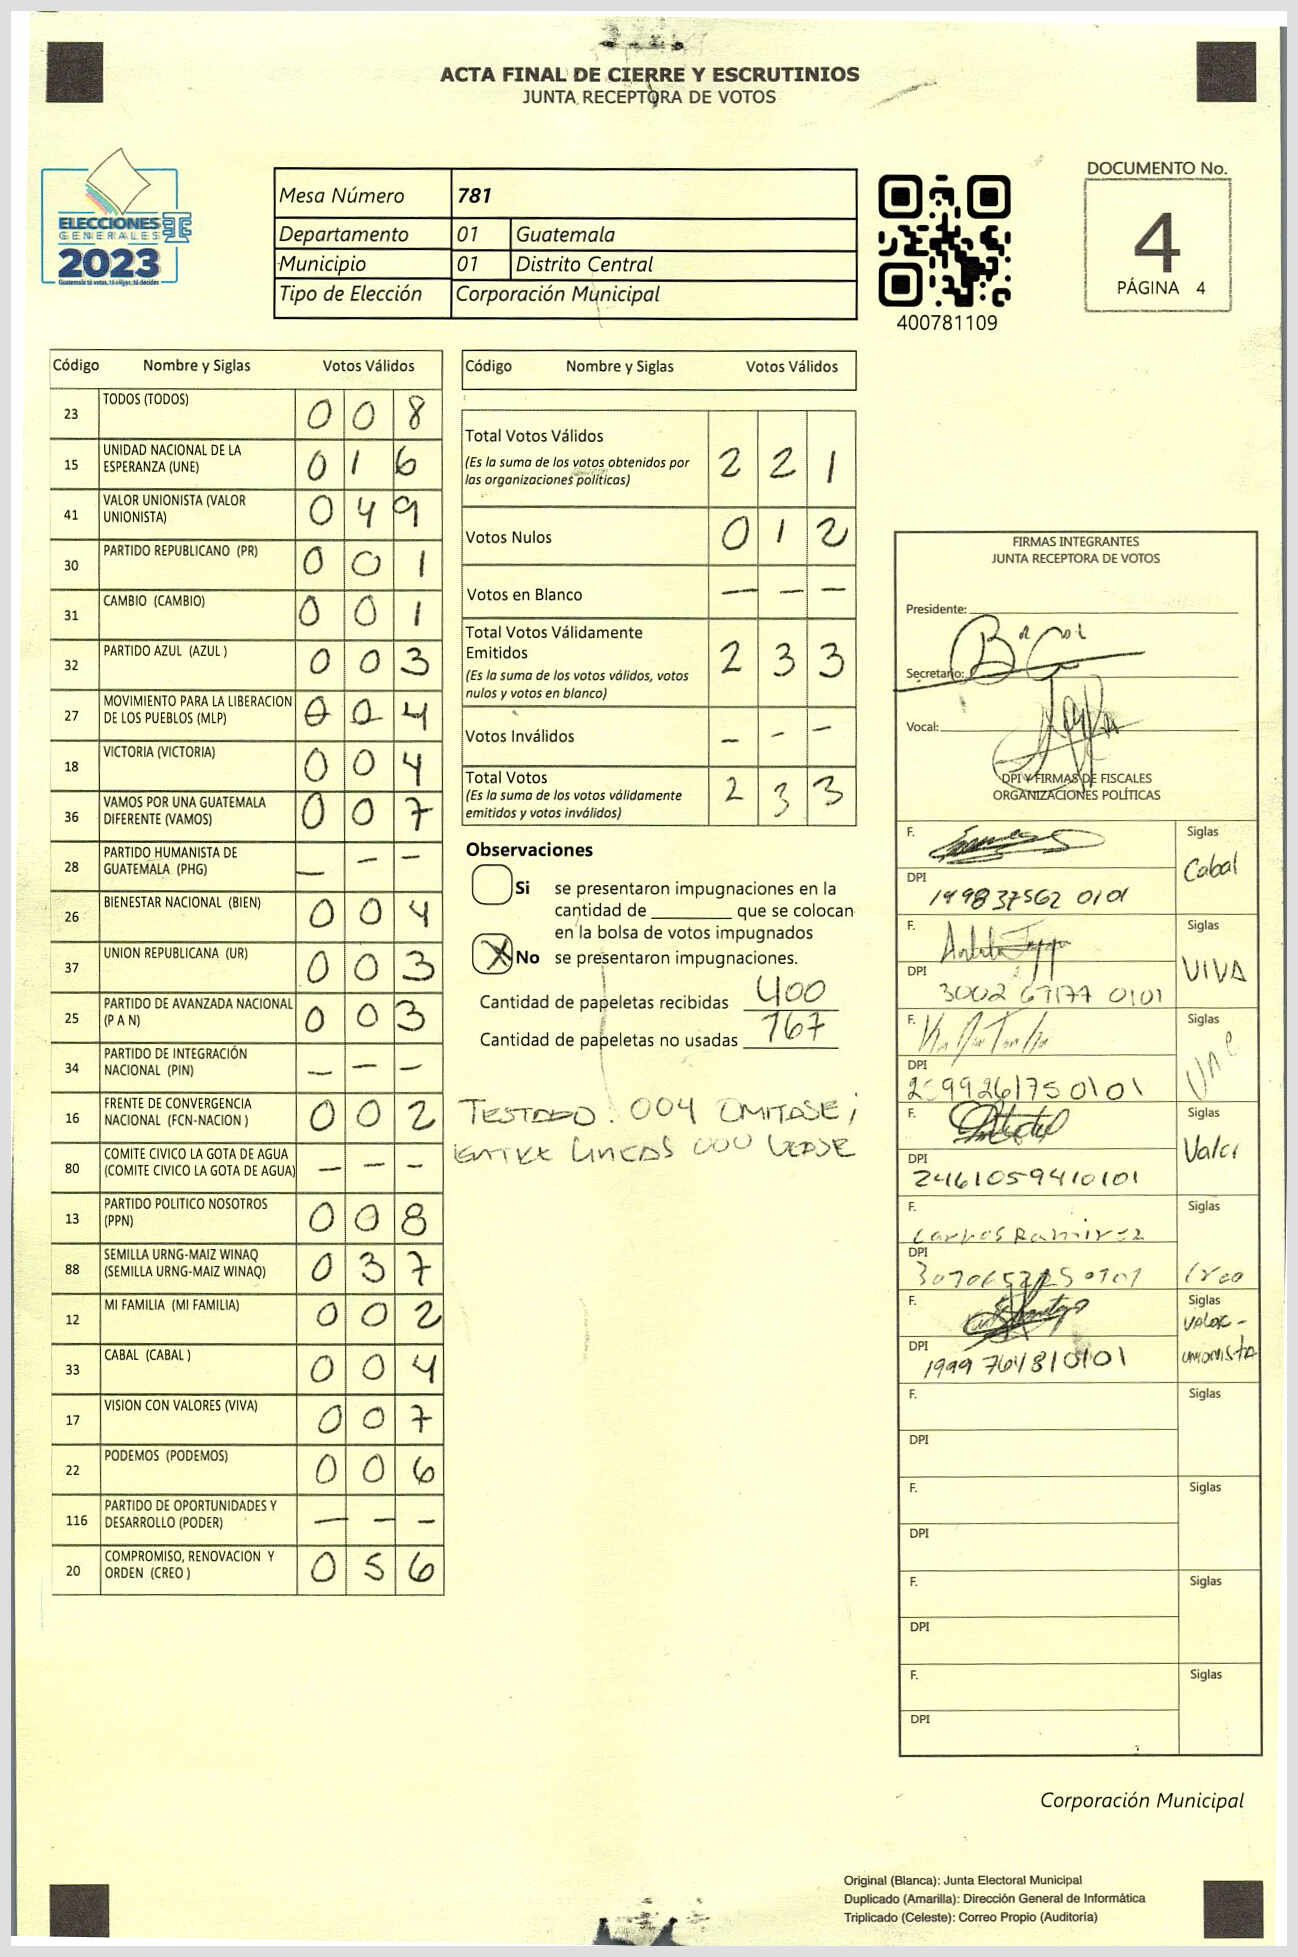 ACTA FINAL DE CIERRE Y ESCRUTINIOS
JUNTA RECEPTORA DE VOTOS
ELECCIONES
GENERALES
2023
Mesa Número 781
Departamento 01 Guatemala
Municipio 01 Distrito Central
Tipo de Elección Corporación Municipal
400781109
DOCUMENTO No.
4
PÁGINA 4
Código Nombre y Siglas Votos Válidos
23 TODOS (TODOS) 0 0 8
15 UNIDAD NACIONAL DE LA ESPERANZA (UNE) 0 1 6
41 VALOR UNIONISTA (VALOR UNIONISTA) 0 4 9
30 PARTIDO REPUBLICANO (PR) 0 0 1
31 CAMBIO (CAMBIO) 0 0 1
32 PARTIDO AZUL (AZUL ) 0 0 3
27 MOVIMIENTO PARA LA LIBERACION DE LOS PUEBLOS (MLP) 0 0 4
18 VICTORIA (VICTORIA) 0 0 4
36 VAMOS POR UNA GUATEMALA DIFERENTE (VAMOS) 0 0 7
28 PARTIDO HUMANISTA DE GUATEMALA (PHG) — — —
26 BIENESTAR NACIONAL (BIEN) 0 0 4
37 UNION REPUBLICANA (UR) 0 0 3
25 PARTIDO DE AVANZADA NACIONAL (P A N) 0 0 3
34 PARTIDO DE INTEGRACIÓN NACIONAL (PIN) — — —
16 FRENTE DE CONVERGENCIA NACIONAL (FCN-NACION ) 0 0 2
80 COMITE CIVICO LA GOTA DE AGUA (COMITE CIVICO LA GOTA DE AGUA) — — —
13 PARTIDO POLITICO NOSOTROS (PPN) 0 0 8
88 SEMILLA URNG-MAIZ WINAQ (SEMILLA URNG-MAIZ WINAQ) 0 3 7
12 MI FAMILIA (MI FAMILIA) 0 0 2
33 CABAL (CABAL ) 0 0 4
17 VISION CON VALORES (VIVA) 0 0 7
22 PODEMOS (PODEMOS) 0 0 6
116 PARTIDO DE OPORTUNIDADES Y DESARROLLO (PODER) — — —
20 COMPROMISO, RENOVACION Y ORDEN (CREO ) 0 5 6
Código Nombre y Siglas Votos Válidos
Total Votos Válidos 2 2 1
(Es la suma de los votos obtenidos por
las organizaciones políticas)
Votos Nulos 0 1 2
Votos en Blanco — — —
Total Votos Válidamente
Emitidos 2 3 3
(Es la suma de los votos válidos, votos
nulos y votos en blanco)
Votos Inválidos — — —
Total Votos 2 3 3
(Es la suma de los votos válidamente
emitidos y votos inválidos)
Observaciones
Si se presentaron impugnaciones en la
cantidad de ________ que se colocan
en la bolsa de votos impugnados
X No se presentaron impugnaciones.
Cantidad de papeletas recibidas 400
Cantidad de papeletas no usadas 167
TESTADO: 004 OMITASE;
ENTRE LINEAS 000 LEASE
FIRMAS INTEGRANTES
JUNTA RECEPTORA DE VOTOS
Presidente:
Secretario:
Vocal:
DPI Y FIRMAS DE FISCALES
ORGANIZACIONES POLÍTICAS
F. Siglas
Cabal
DPI
1998 37562 0101
F. Siglas
VIVA
DPI
3002 67177 0101
F. Siglas
UNE
DPI
F. Siglas
Valor
DPI
2461059410101
F. Siglas
Carlos Ramirez
DPI
Creo
F. Siglas
VALOR-
UNIONISTA
DPI
1999 764810101
F. Siglas
DPI
F. Siglas
DPI
F. Siglas
DPI
F. Siglas
DPI
Corporación Municipal
Original (Blanca): Junta Electoral Municipal
Duplicado (Amarilla): Dirección General de Informática
Triplicado (Celeste): Correo Propio (Auditoría)